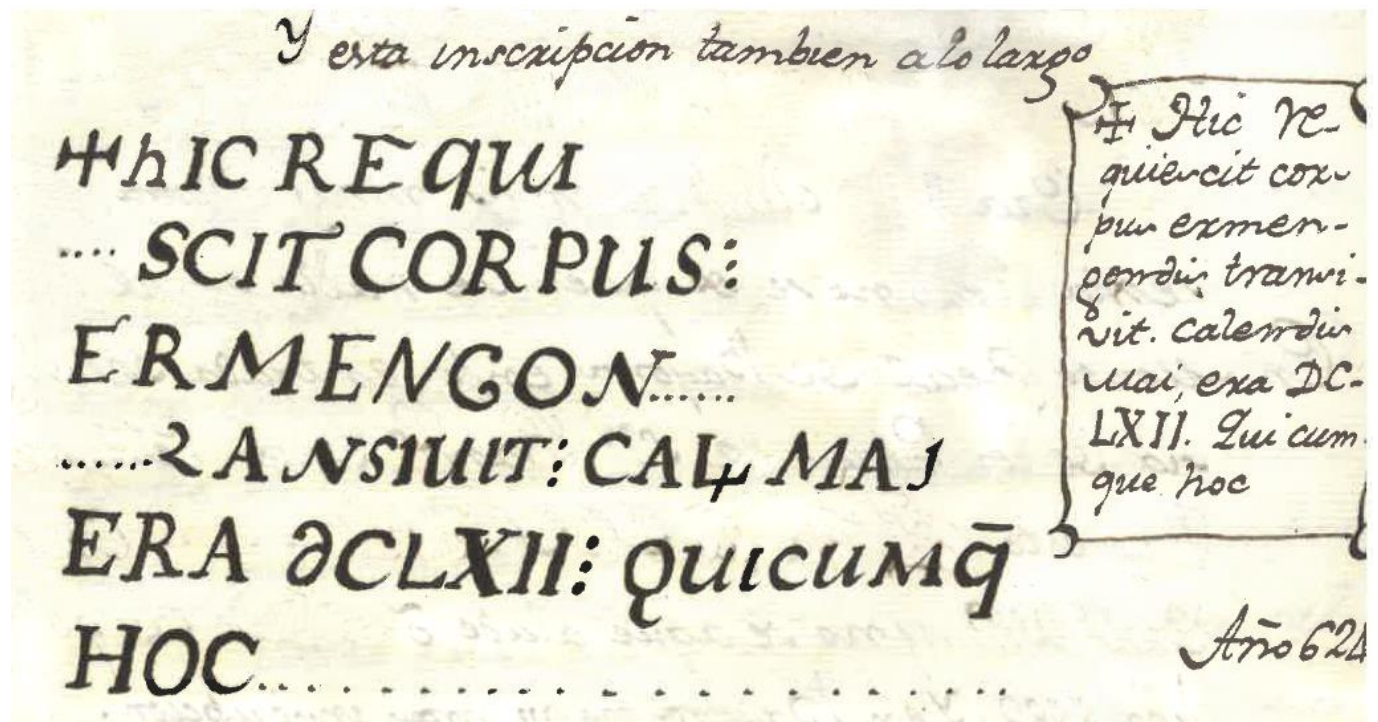 Y esta inscripcion tambien a lo largo
✠ hIC REqUI
.... SCIT CORPUS:
ERMENGON......
......RANSIUIT: CAL MAJ
ERA ∂CLXII: QUICUMq̄
HOC.......................
✠ Hic re-
quiescit cor-
pus ermen-
gondis transi-
vit. calendis
maí, era DC-
LXII. Qui cum
que hoc
Año 624